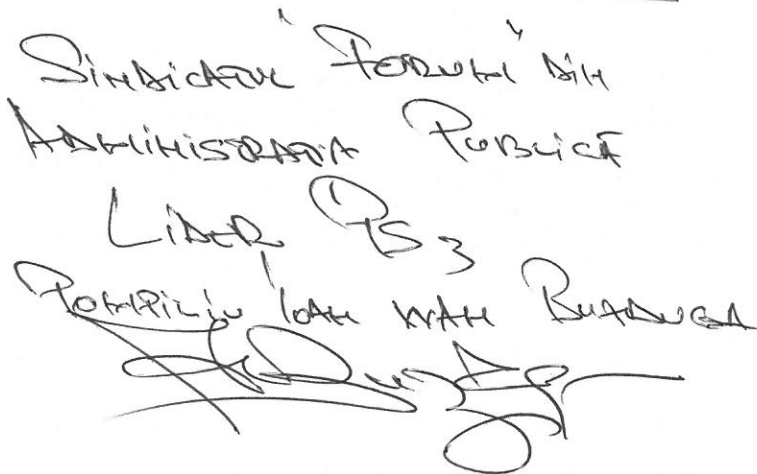 Sindicatul "Forum" din
Administrația Publică
Lider PS3
Pompiliu Ioan